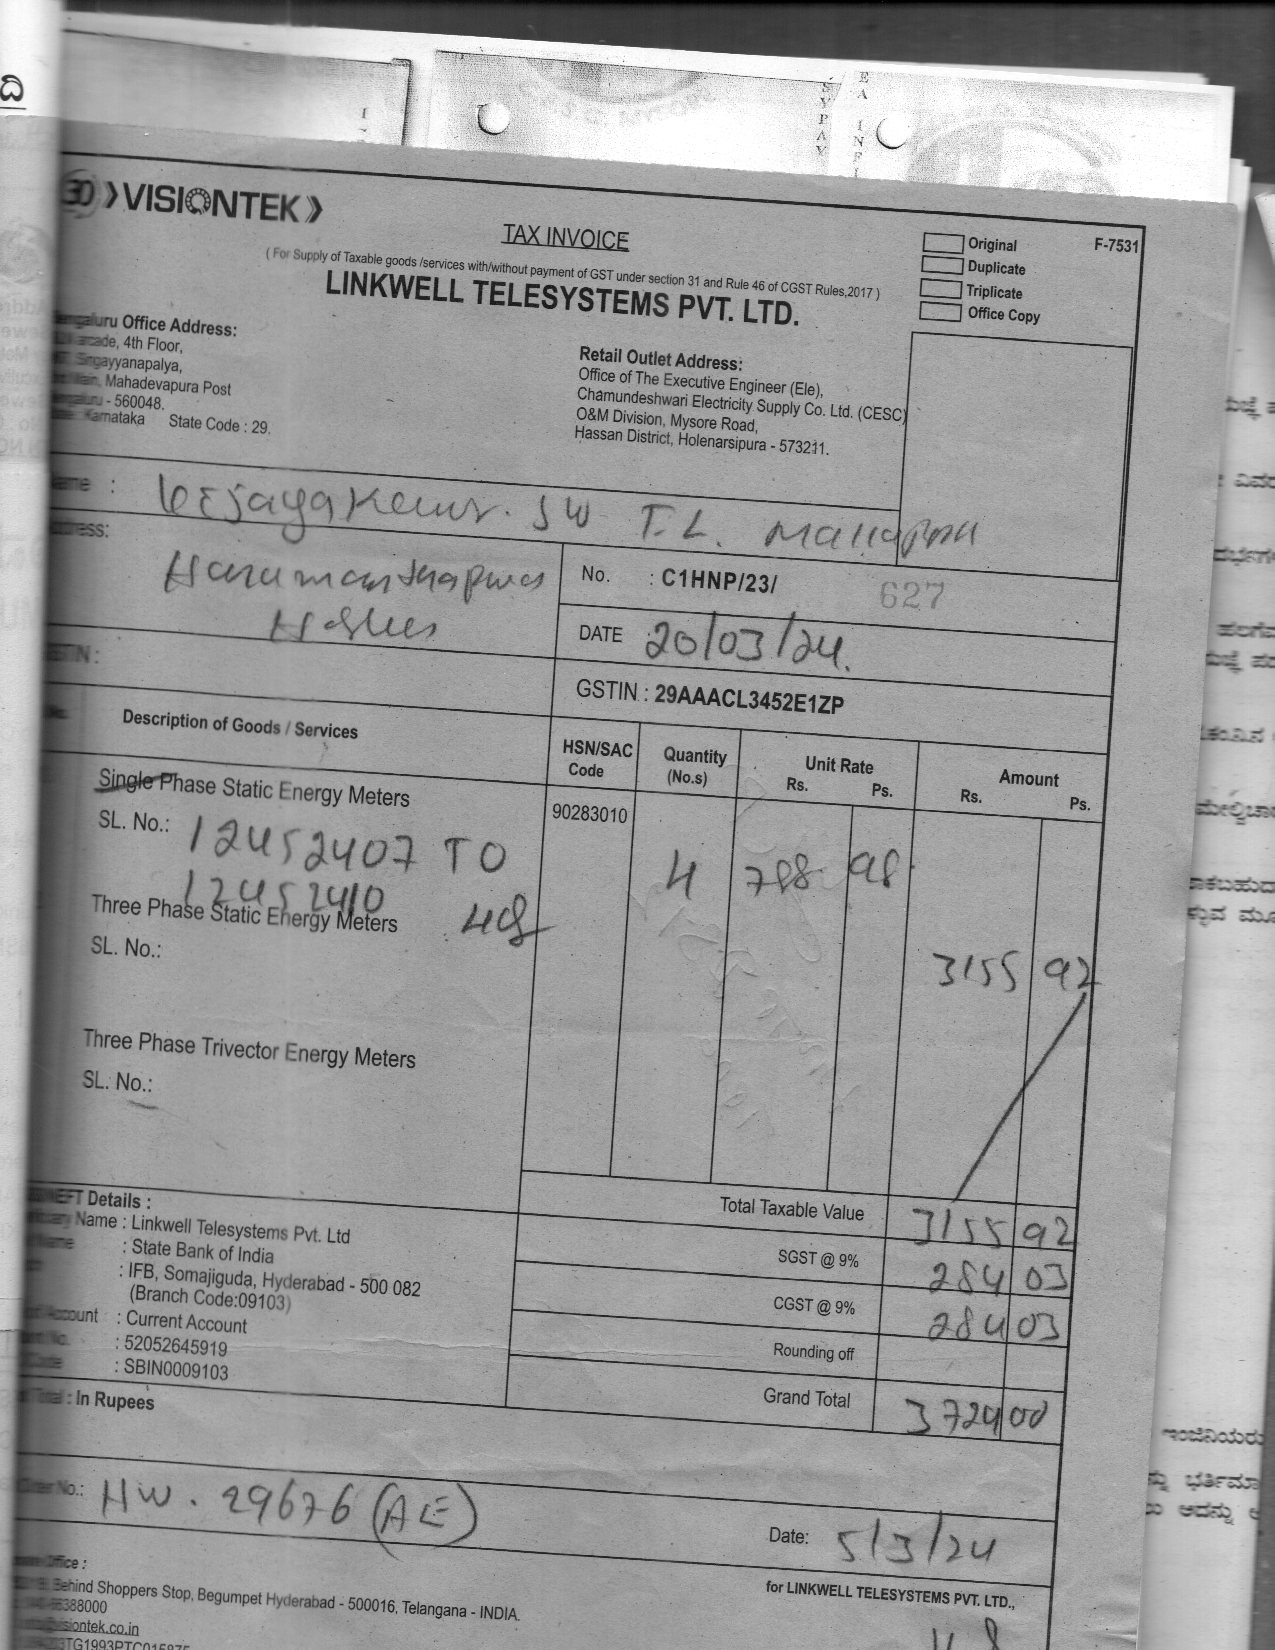 ದಿ
30 VISIONTEK
TAX INVOICE
( For Supply of Taxable goods /services with/without payment of GST under section 31 and Rule 46 of CGST Rules,2017 )
LINKWELL TELESYSTEMS PVT. LTD.
Original
Duplicate
Triplicate
Office Copy
F-7531
Bengaluru Office Address:
4th Floor,
Singayyanapalya,
Mahadevapura Post
Bengaluru - 560048.
Karnataka State Code : 29.
Retail Outlet Address:
Office of The Executive Engineer (Ele),
Chamundeshwari Electricity Supply Co. Ltd. (CESC)
O&M Division, Mysore Road,
Hassan District, Holenarsipura - 573211.
Name :
T. L.
Address:
No. : C1HNP/23/ 627
DATE 20/03/24.
GSTIN :
GSTIN : 29AAACL3452E1ZP
Description of Goods / Services
HSN/SAC Code
Quantity (No.s)
Unit Rate Rs. Ps.
Amount Rs. Ps.
Single Phase Static Energy Meters
90283010
SL. No.: 12452407 TO
12452410
4 788 98
Three Phase Static Energy Meters
SL. No.:
3155 92
Three Phase Trivector Energy Meters
SL. No.:
Total Taxable Value 3155 92
SGST @ 9% 284 03
CGST @ 9% 284 03
Rounding off
Grand Total 3724 00
NEFT Details :
Name : Linkwell Telesystems Pvt. Ltd
Name : State Bank of India
: IFB, Somajiguda, Hyderabad - 500 082
(Branch Code:09103)
Account : Current Account
No. : 52052645919
Code : SBIN0009103
Total : In Rupees
No.: HW. 29676 (AE)
Date: 5/3/24
Office :
Behind Shoppers Stop, Begumpet Hyderabad - 500016, Telangana - INDIA.
for LINKWELL TELESYSTEMS PVT. LTD.,
ಇಂಜಿನಿಯರು